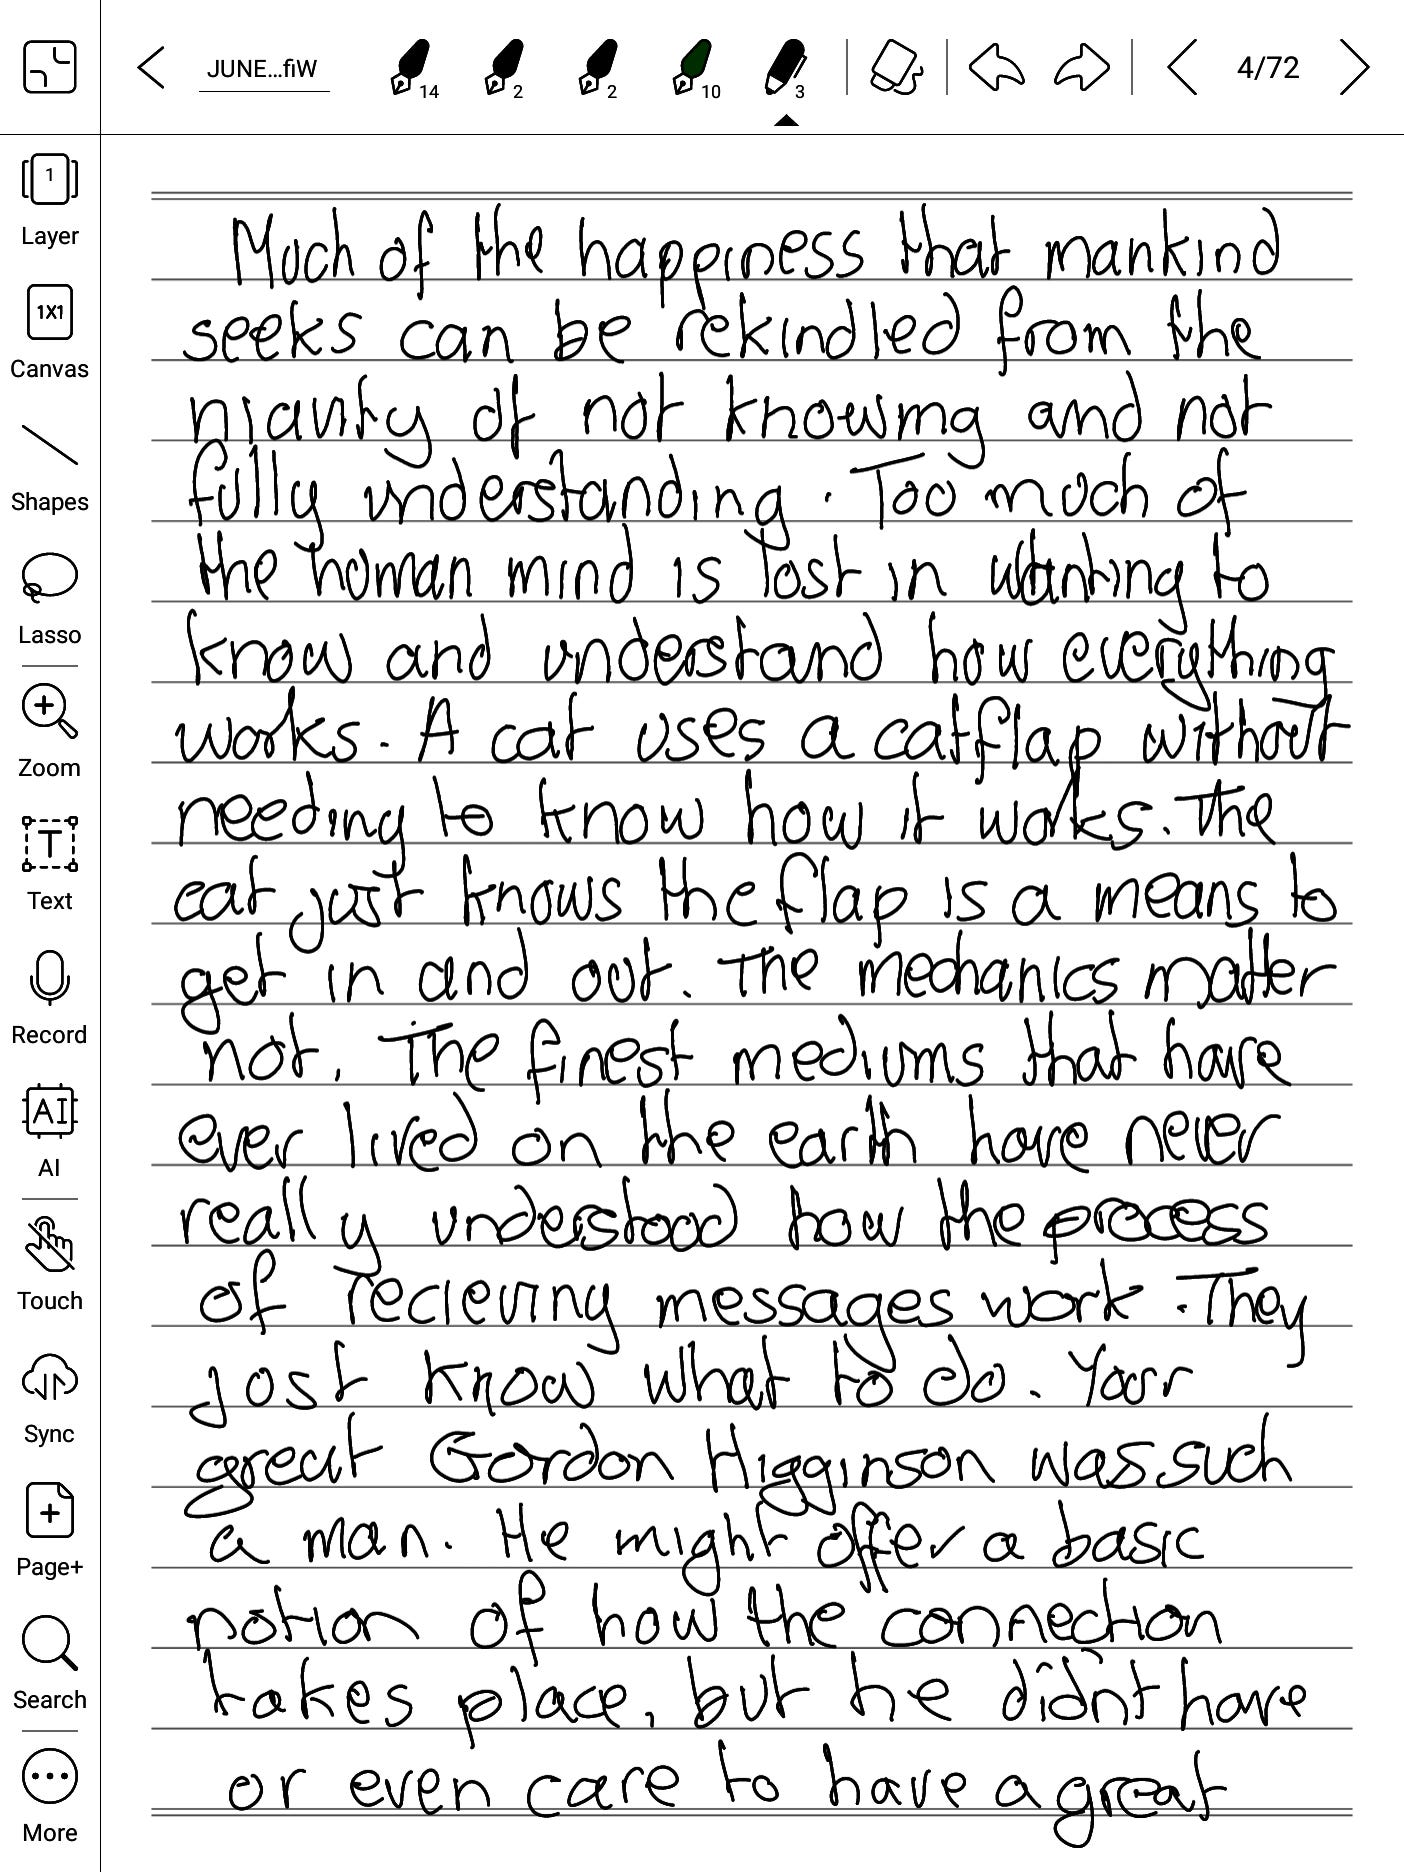 JUNE...fiW
14
2
2
10
3
4/72
1
Layer
1X1
Canvas
Shapes
Lasso
Zoom
T
Text
Record
AI
AI
Touch
Sync
Page+
Search
More
Much of the happiness that mankind
seeks can be rekindled from the
niavity of not knowing and not
fully understanding. Too much of
the human mind is lost in wanting to
know and understand how everything
works. A cat uses a catflap without
needing to know how it works. The
cat just knows the flap is a means to
get in and out. The mechanics matter
not. The finest mediums that have
ever lived on the earth have never
really understood how the process
of recieving messages work. They
just know what to do. Your
great Gordon Higginson was such
a man. He might offer a basic
notion of how the connection
takes place, but he didn't have
or even care to have a great